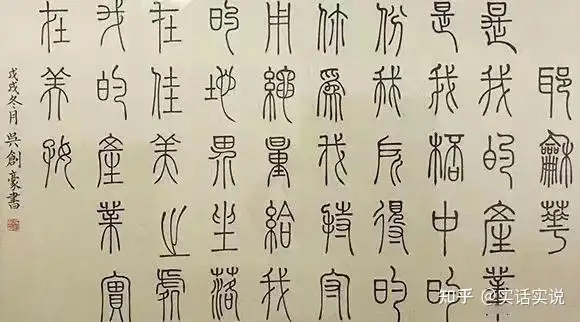 耶龢華
是我的產業
是我杯中的
份我所得的
你爲我持守
用繩量給我
的地界坐落
在佳美之處
我的產業實
在美好
戊戌冬月吳創豪書
知乎 @实话实说